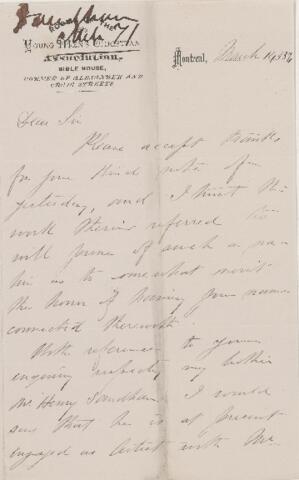 Sandham
Rooms of the
Young Men's Christian
Association,
Bible House,
Corner of Alexander and
Craig Streets
Montreal, March 14, 187
Dear Sir
Please accept thanks
for your kind note of
yesterday, and I trust the
work therein referred to
will prove of such a na-
ture as to somewhat merit
the honor of having your name
connected therewith.
With reference to your
enquiry respecting my brother
Mr Henry Sandham I would
say that he is at present
engaged as Artist with Mr